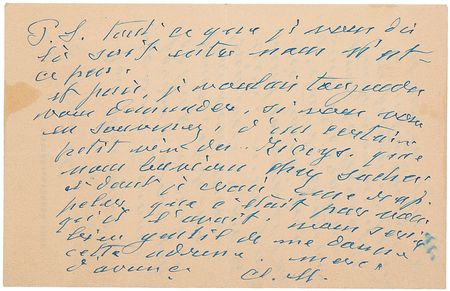 P.S. tout ce que je vous dis
là soit entre nous n'est-
ce pas.
et puis, je voulais toujours
vous demander, si vous vous
en souvenez, d'un certain
petit vin des Riceys que
nous buvions chez Sacha
et dont je crois me rap-
peler, que c'était par vous
qu'il l'avait. vous seriez
bien gentil de me donner
cette adresse. merci
d'avance Cl. M.